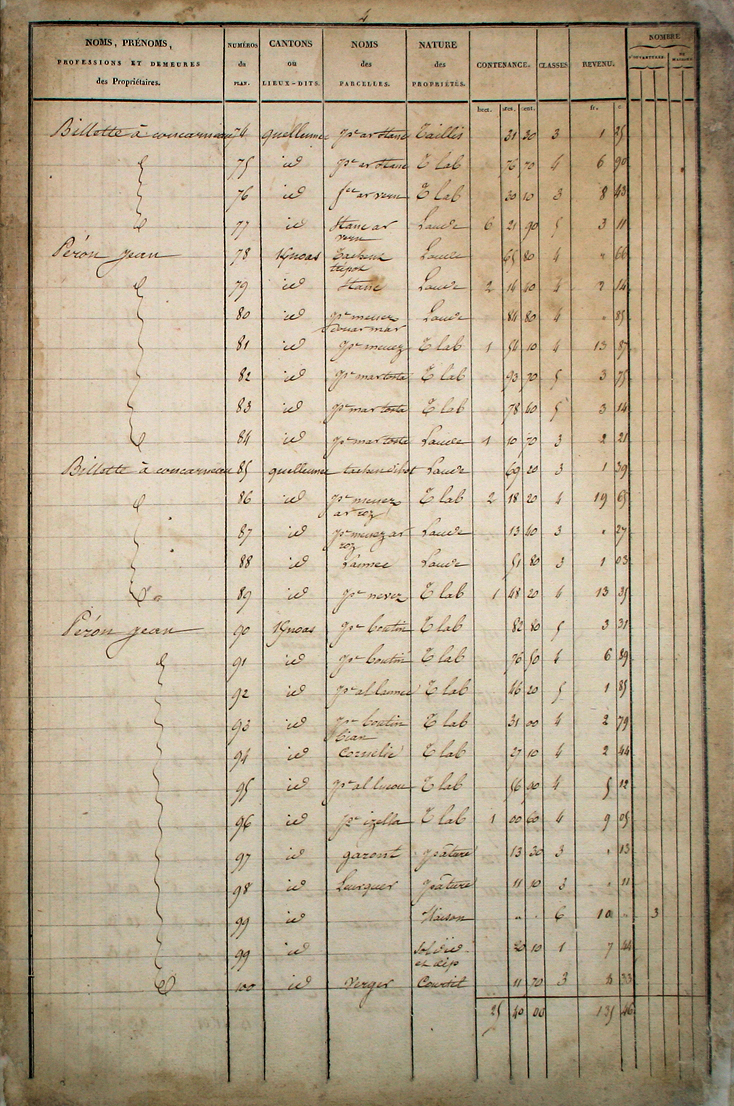 4
NOMS, PRÉNOMS, PROFESSIONS ET DEMEURES des Propriétaires. NUMÉROS du PLAN. CANTONS ou LIEUX-DITS. NOMS des PARCELLES. NATURE des PROPRIÉTÉS. CONTENANCE. CLASSES. REVENU. NOMBRE
hect. ares. cent. fr. c.
Billotte à concarneau 74 quelleunec pce ar stanc Taillis 31 20 3 1 25
75 id pce ar stanc T lab 76 70 4 6 90
76 id ar vern T lab 30 10 3 8 43
77 id Stanc ar vern Lande 6 21 90 5 3 11
Péron jean 78 Kgnoas Lande 65 80 4 " 66
79 id Stanc Lande 2 14 40 4 2 14
80 id pce menez douar mar Lande 84 80 4 " 85
81 id pce menez T lab 1 54 10 4 13 87
82 id pce mar tosta T lab 93 70 5 3 75
83 id pce mar tosta T lab 78 40 5 3 14
84 id pce mar tosta Lande 1 10 70 3 2 21
Billotte à concarneau 85 quelleunec Lande 69 20 3 1 39
86 id pce menez ar roz T lab 2 18 20 4 19 65
87 id pce menez ar roz Lande 13 40 3 " 27
88 id Lannec Lande 51 80 3 1 03
89 id pce nevez T lab 1 48 20 4 13 35
Péron jean 90 Kgnoas pce boutin T lab 82 80 5 3 31
91 id pce boutin T lab 76 50 4 6 89
92 id pce al lannec T lab 46 20 5 1 85
93 id pce boutin bian T lab 31 00 4 2 79
94 id T lab 27 10 4 2 44
95 id T lab 56 90 4 5 12
96 id pce izella T lab 1 00 60 4 9 05
97 id garont pâture 13 30 3 " 13
98 id Leurguer pâture 11 10 3 " 11
99 id Maison " " 6 10 " 3
99 id Sol d'id et dép 20 10 1 7 44
100 id verger Courtil 11 70 3 33
25 40 00 135 46